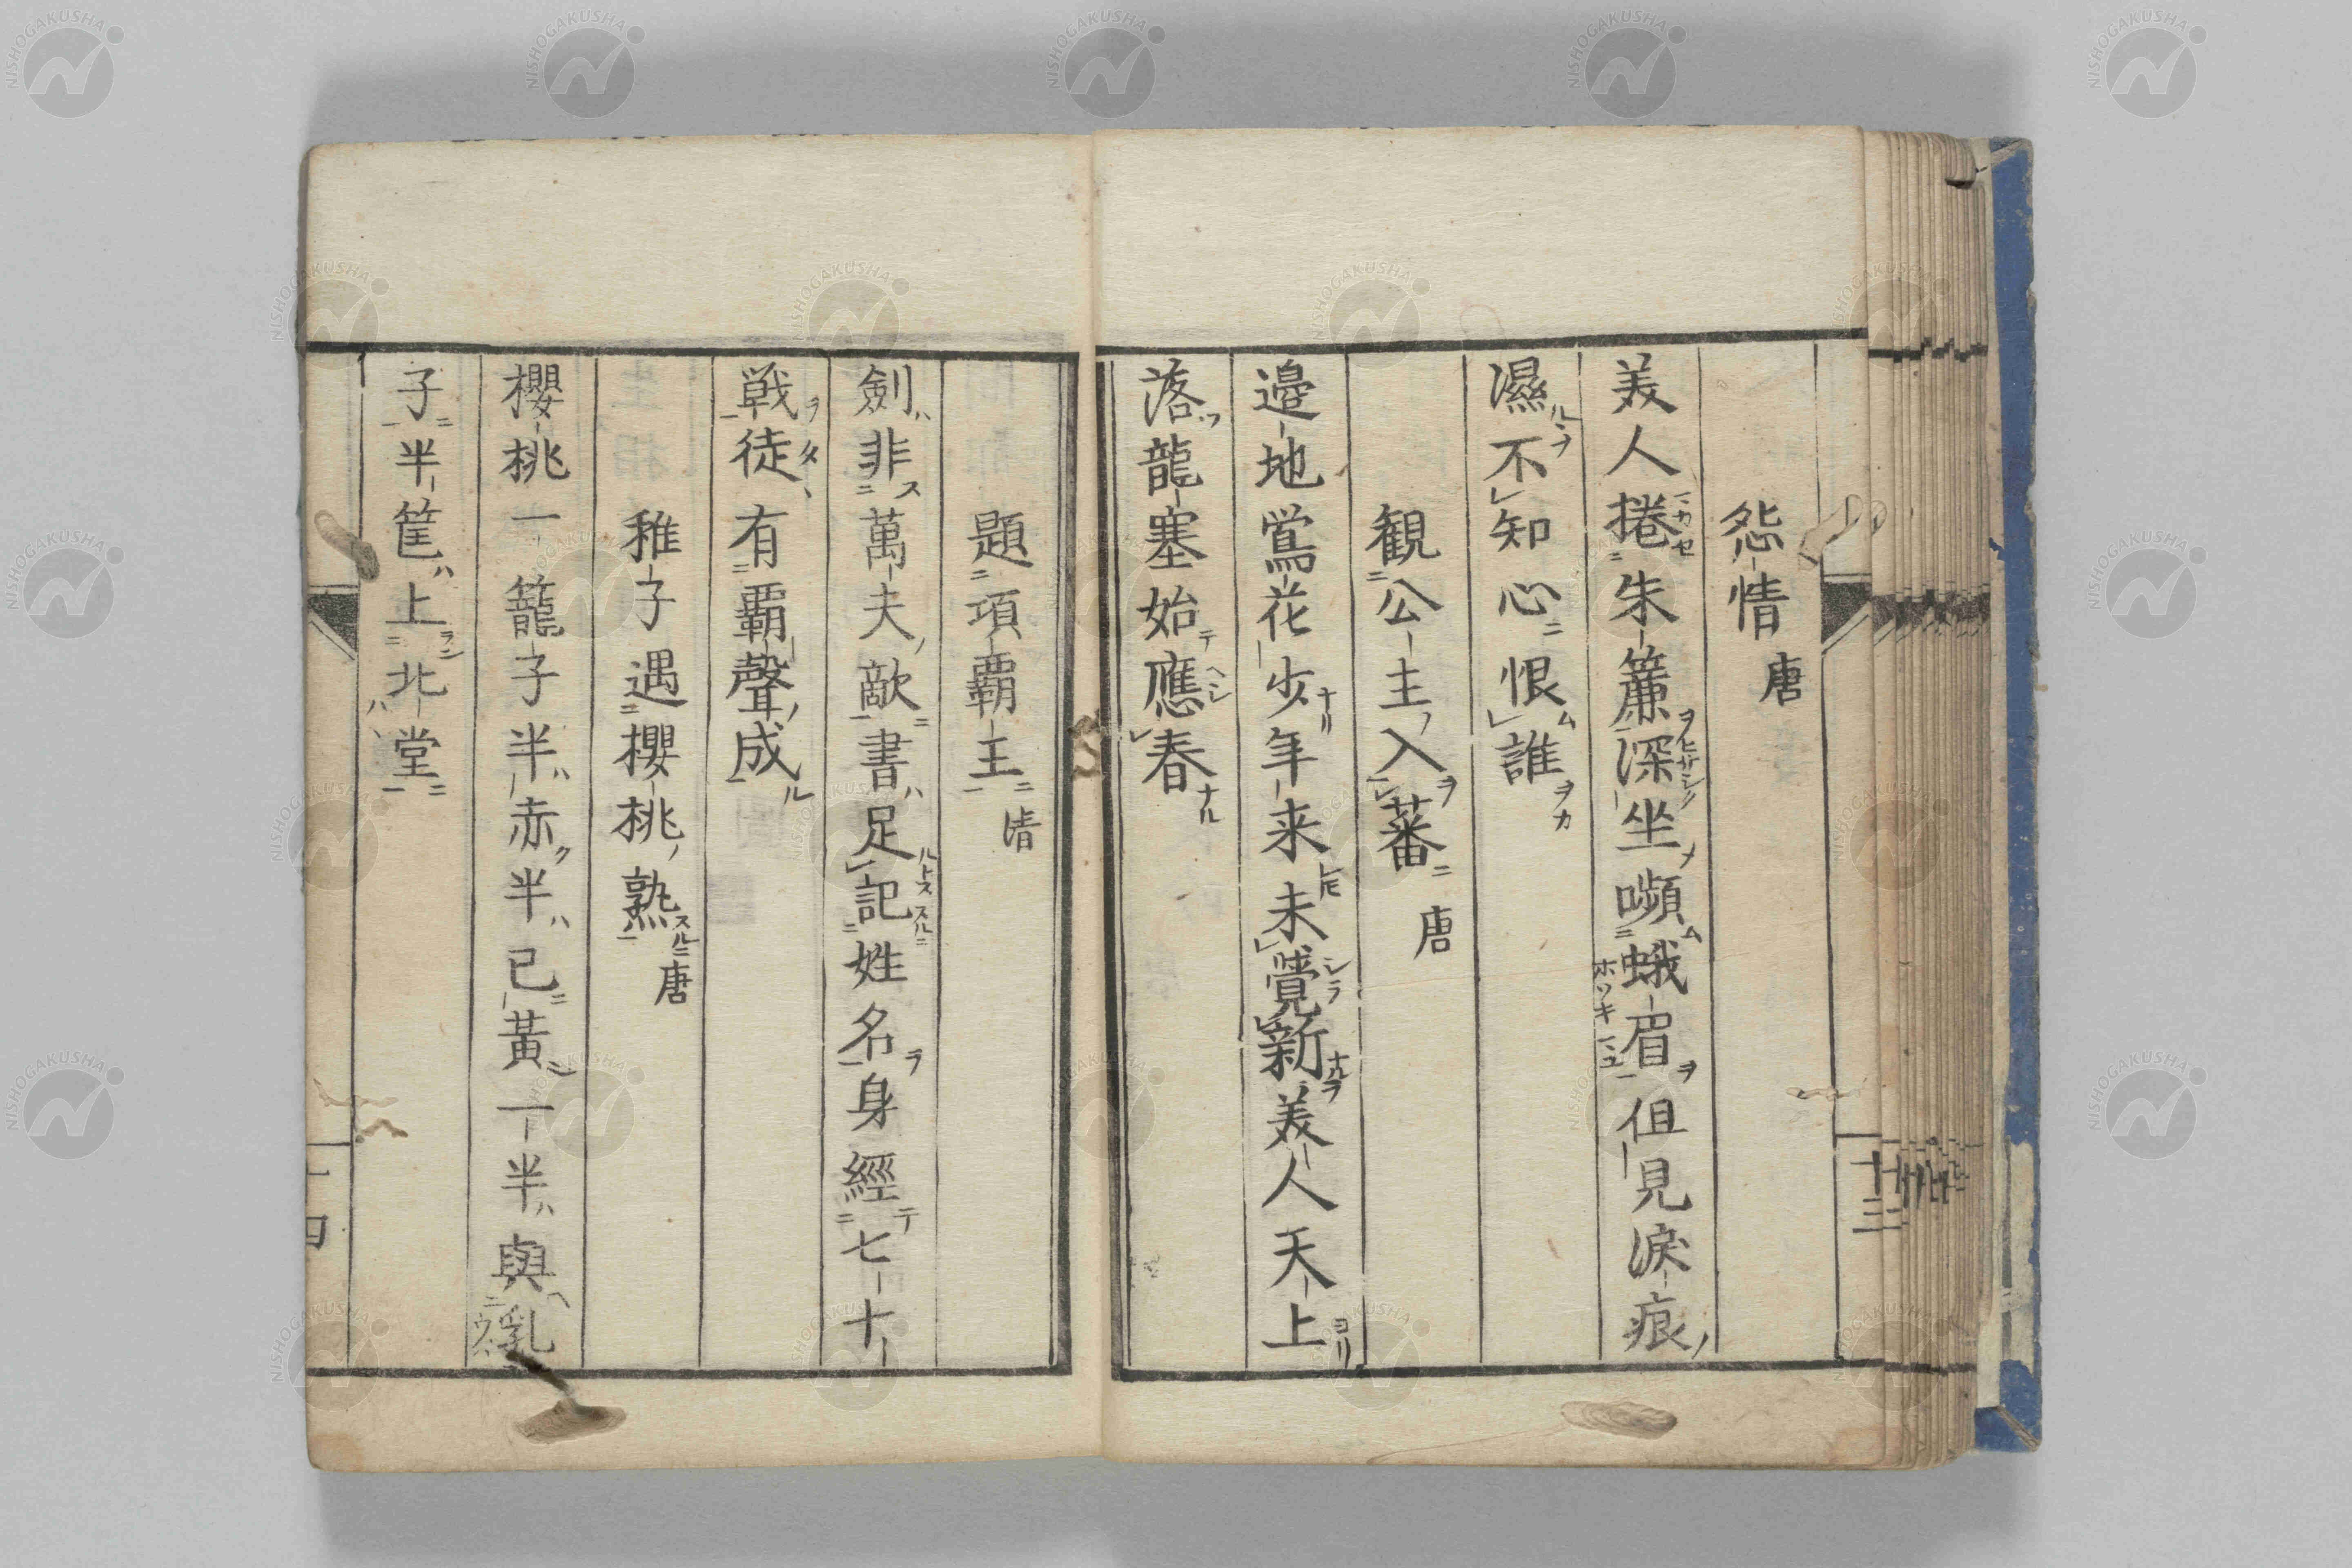 怨情 唐
美人捲朱簾深坐嚬蛾眉但見淚痕
濕不知心恨誰
観公主入蕃 唐
邉地鶯花少年来未覺新美人天上
落龍塞始應春
題項覇王 清
劍非萬夫敵書足記姓名身經七十
戦徒有覇聲成
稚子遇櫻桃熟 唐
櫻桃一籠子半赤半已黃一半與乳
子半筐上北堂
十三
十四
NISHOGAKUSHA